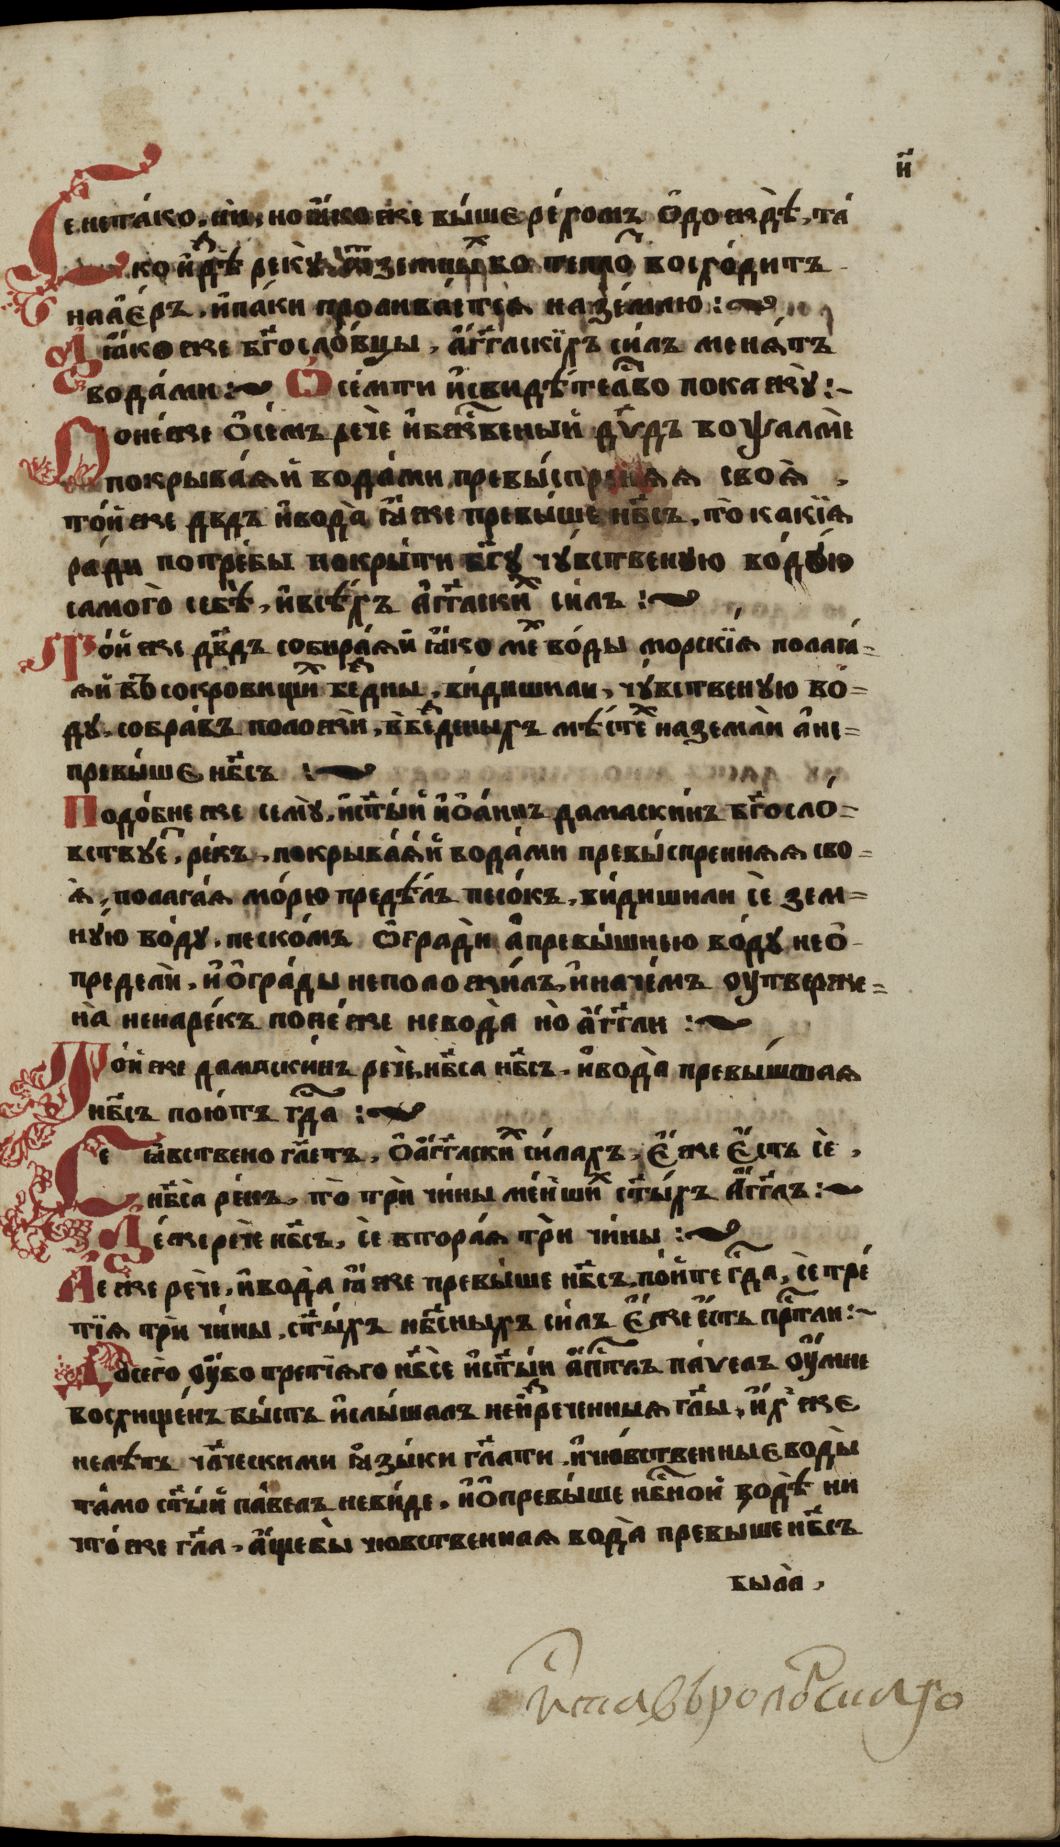 и҃
Се не та́ко. но ꙗ҆́коже вы́ше реко́хомъ ѡ҆ дожде́, та́
ко и҆здѐ рекꙋ̀ во тепло̀ восхо́дитъ
на а҆е́ръ, и҆ па́ки пролива́етсѧ на зе́млю :~
А ꙗ҆́коже бг҃осло́вцы, а҆́гг҃лскїхъ си́лъ меня́тъ
вода́ми :~ Ѿ се́мъ ти и҆ свидѣ́телство покажꙋ̀ :~
Поне́же ѡ҆ се́мъ речѐ и҆ бж҃е́ственый дв҃дъ во ѱалмѐ
покрыва́ѧй вода́ми превы́спренѧѧ своѧ̀ ,
то́йже дв҃дъ и҆ вода̀ ꙗ҆́же превы́ше нб҃съ, то̀ какїѧ
ра́ди потре́бы покры́ти бг҃ꙋ чꙋ́вственꙋю во́дꙋю
самого̀ себѐ, и҆ всѣ́хъ а҆́гг҃лскихъ си́лъ :~
То́йже дв҃дъ собира́ѧй ꙗ҆́ко мѣ́хъ во́ды морскі́ѧ полага́-
ѧй въ сокро́вищихъ бе́здны, ви́диши ли, чꙋ́вственꙋю во-
дꙋ, собра́въ положѝ, в бе́здныхъ мѣ́стехъ на землѝ а҆ не-
превы́ше нб҃съ :~
Подо́бне же семꙋ̀, и҆ ст҃ы́й и҆ѡа́ннъ дамаски́нъ бг҃осло́-
вствꙋетъ, ре́къ, покрыва́ѧй вода́ми превы́спреннѧѧ сво-
ѧ̀, полага́ѧ мо́рю предѣ́лъ песо́къ, ви́диши ли сѐ зем-
нꙋ́ю во́дꙋ, песко́мъ ѡ҆градѝ а҆ превы́шнею во́дꙋ не ѡ҆-
пределѝ, и҆ ѡ҆гра́ды не положи́лъ, и҆ на че́мъ ᲂу҆тверже-
на̀ не наре́къ поне́же не вода̀ но̀ а҆́гг҃ли :~
То́йже дамаски́нъ речѐ, нб҃са̀ нб҃съ, и҆ вода̀ превы́шшаѧ
нб҃съ пою́тъ гд҃а :~
Се ꙗ҆́вствено гл҃етъ, ѡ҆ а҆́гг҃лскихъ си́лахъ, є҆́же є҆́сть сѐ ,
нб҃са̀ ре́къ, то̀ трѝ чи́ны ме́ншихъ ст҃ы́хъ а҆́гг҃лъ :~
А е́же речѐ нб҃съ, сѐ втора́ѧ трѝ чи́ны :~
А е́же речѐ, и҆ вода̀ ꙗ҆́же превы́ше нб҃съ, по́йте гд҃а, сѐ тре́
тїѧ трѝ чи́ны, ст҃ы́хъ нб҃сныхъ си́лъ є҆́же є҆́сть прⷭ҇то́ли :~
До сего̀ ᲂу҆́бо третїѧго нб҃сѐ и҆ ст҃ы́й а҆пⷭ҇лъ па́ѵелъ ᲂу҆мне
восхище́нъ бы́сть и҆ слы́шалъ неизрече́нныѧ гл҃ы, и҆́хже
нелѣ́ть чл҃ческими ꙗ҆зы́ки гл҃ати и҆ чю́вственные воды̀
та́мо ст҃ы́й па́велъ не ви́де, и҆ ѡ҆ превы́ше нбⷭ҇ной водѣ̀ ни
что́же гл҃а, а҆́ще бы̀ чювственнаѧ вода̀ превы́ше нб҃съ
была̀ ,